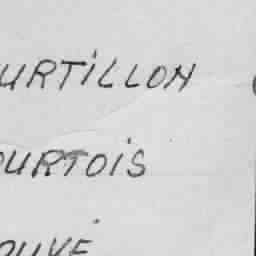 URTiLLON
OURTOiS
OUVE